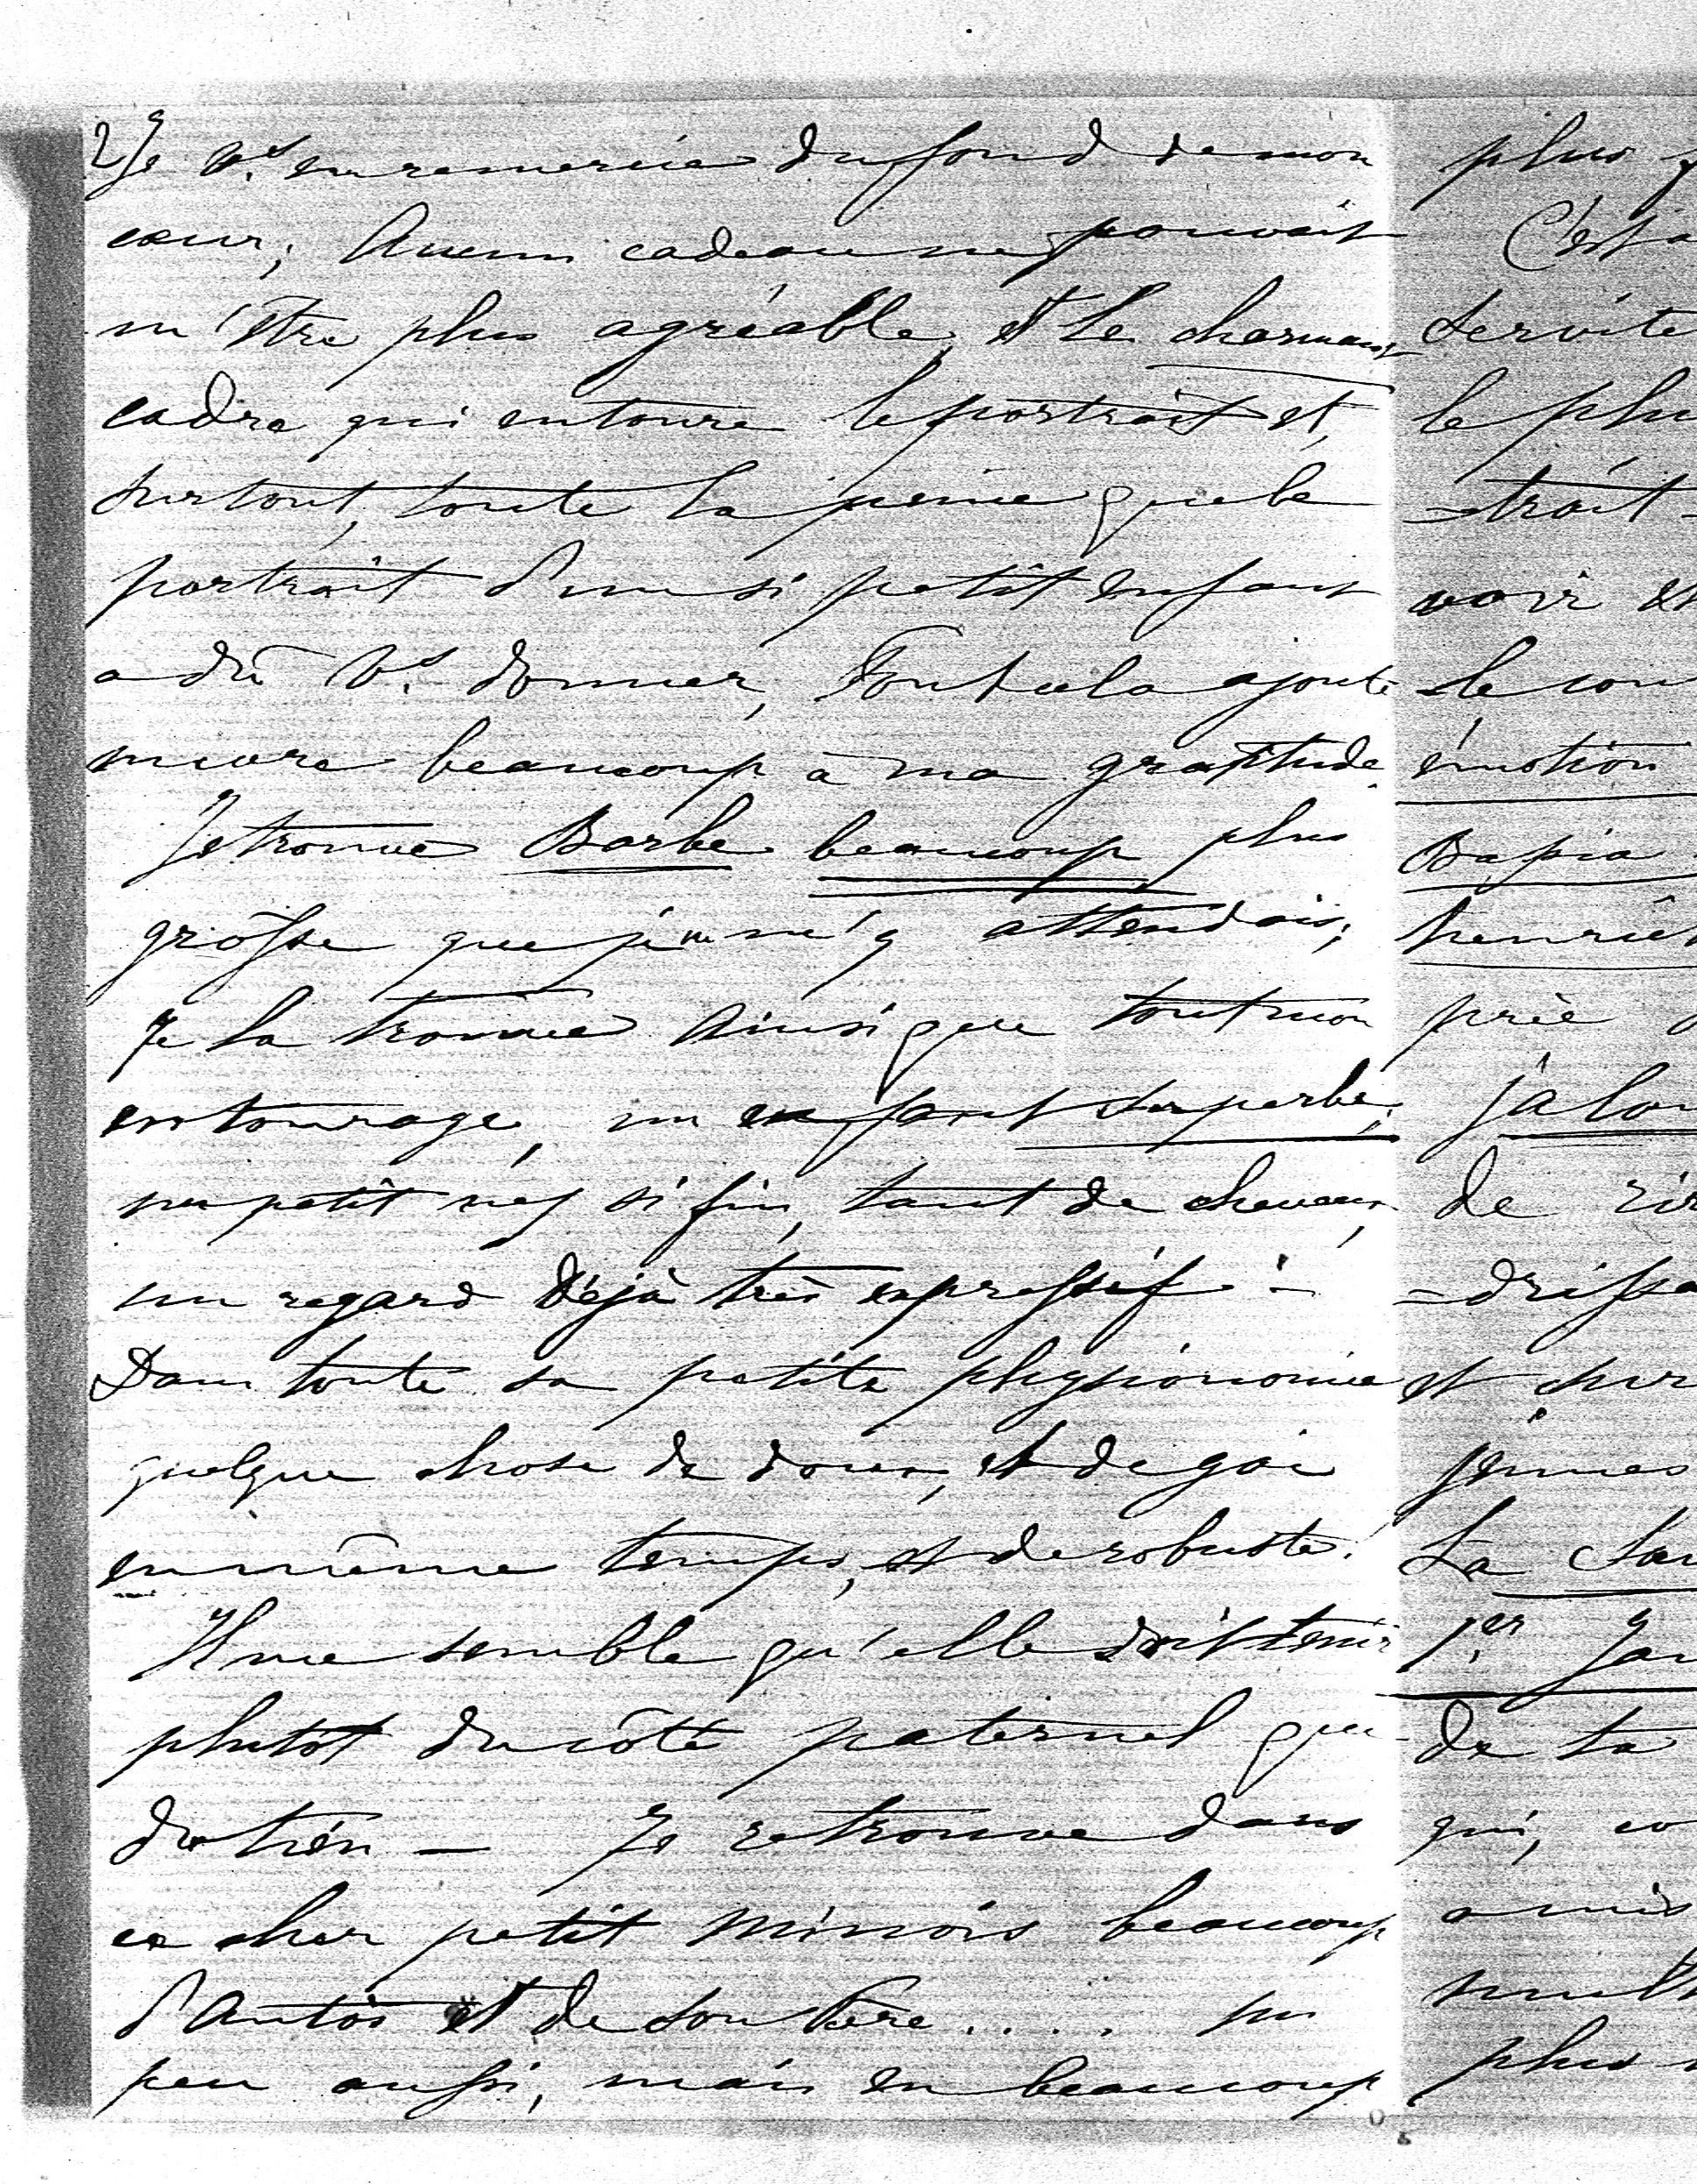 2/ Je vs. en remercie du fond de mon
cœur; Aucun cadeau ne pouvait
m'être plus agréable, et le charmant
cadre qui entoure le portrait et,
surtout, toute la peine que le
portrait d'un si petit enfant
a dû vs. donner, tout cela ajoute
encore beaucoup à ma gratitude.
Je trouve Barbe beaucoup plus
grosse que je ne m'y attendais;
Je la trouve ainsi que tout mon
entourage, un enfant superbe,
un petit nez si fin, tant de cheveux,
un regard déjà très expressif -
Dans toute sa petite physionomie
quelque chose de doux, et de gai
en même temps, et de robuste.
Il me semble qu'elle doit tenir
plutôt du côté paternel que
du tien — Je retrouve dans
ce cher petit minois beaucoup
d'Antos et de son Père..... un
peu aussi, mais en beaucoup
plus
C'est a
servite
le plu
=trait-
voir et
le cou
émotion
Bapia
henriet
prie
jalou
de rir
=drissa
et cher
jeunes
La San
1er Jan
de ta
qui, co
amis
mult
plus